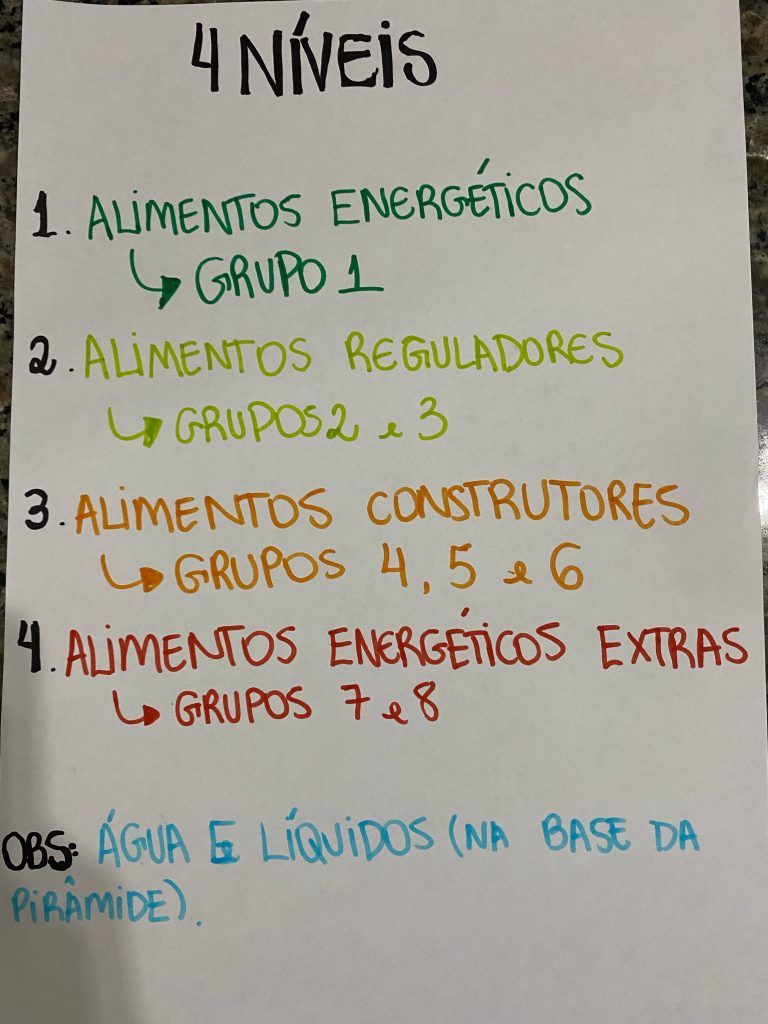 4 NÍVEIS
1. ALIMENTOS ENERGÉTICOS
↳ GRUPO 1
2. ALIMENTOS REGULADORES
↳ GRUPOS 2 e 3
3. ALIMENTOS CONSTRUTORES
↳ GRUPOS 4, 5 e 6
4. ALIMENTOS ENERGÉTICOS EXTRAS
↳ GRUPOS 7 e 8
OBS: ÁGUA E LÍQUIDOS (NA BASE DA
PIRÂMIDE).